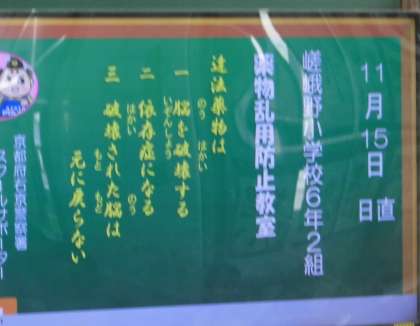 11月15日 日直
嵯峨野小学校6年2組
薬物乱用防止教室
違法薬物は
のう はかい
一 脳を破壊する
いぞんしょう
二 依存症になる
はかい のう
三 破壊された脳は
もと もど
元に戻らない
京都府右京警察署
スクールサポーター